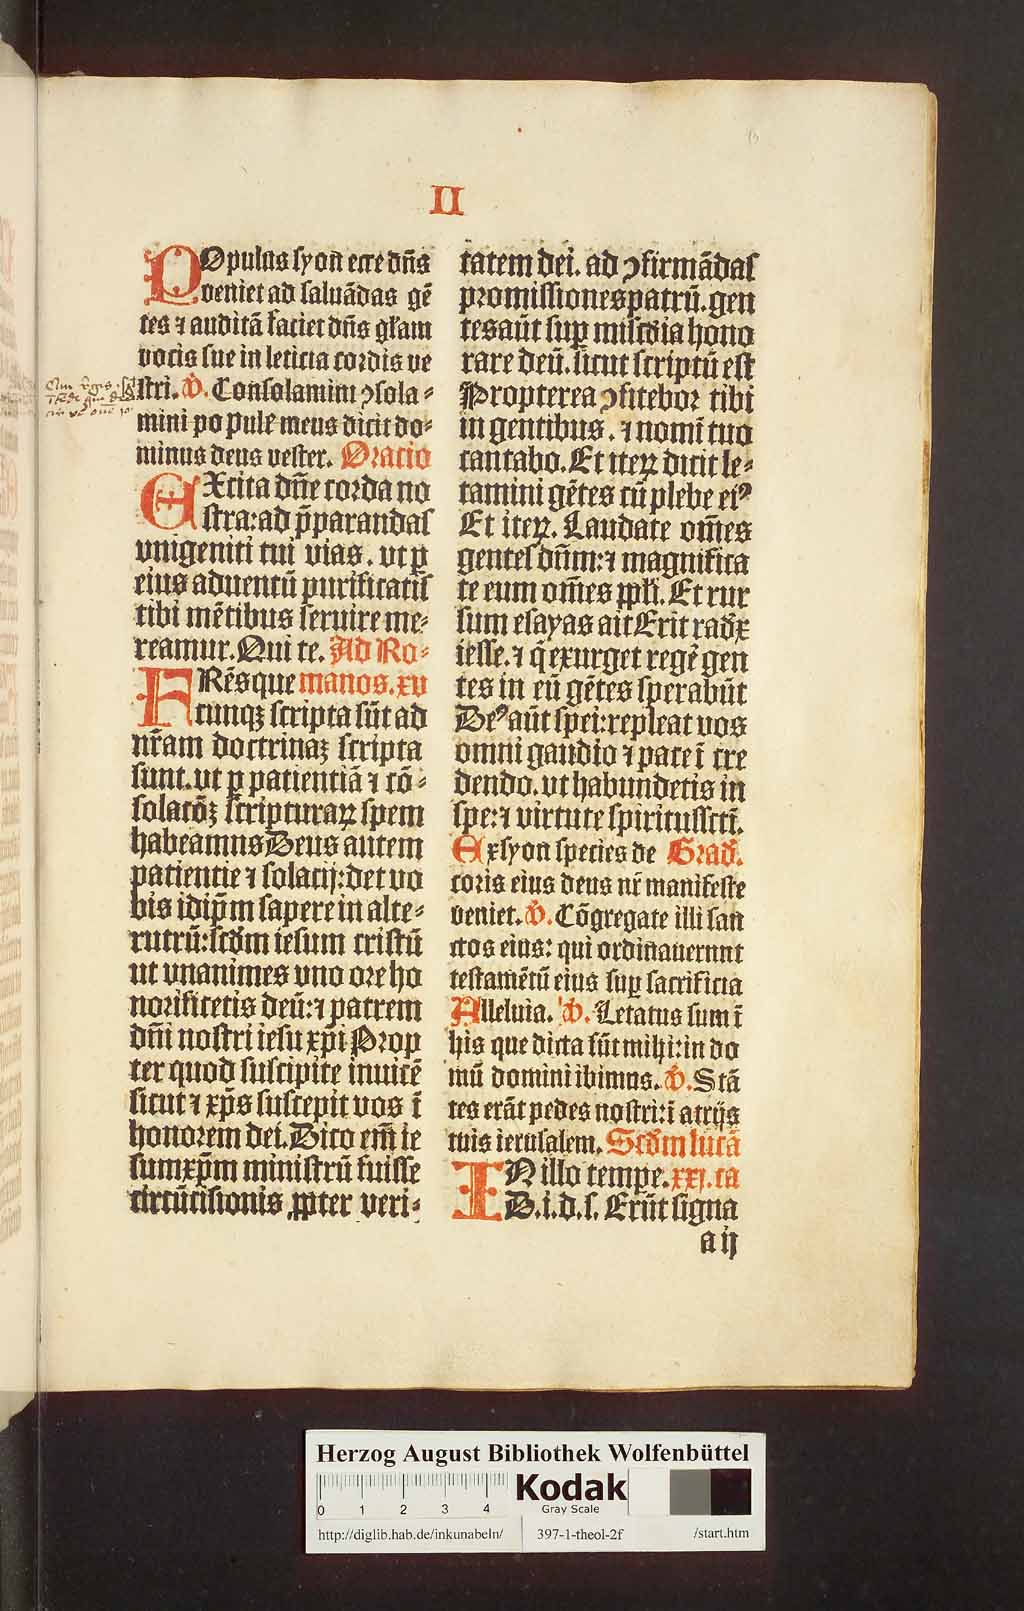 II
POpulus syon ecce dn̄s
veniet ad saluādas gē
tes ⁊ auditā faciet dn̄s gl̓am
vocis sue in leticia cordis ve
stri. V̓. Consolamini ↄsola⸗
mini popule meus dicit do⸗
minus deus vester. Oratio
EXcita dn̄e corda no
stra: ad p̄parandas
vnigeniti tui vias. vt ꝑ
eius aduentū purificatis̄
tibi mētibus seruire me⸗
reamur. Qui te. Ad Ro⸗
FRēsque manos. xv
cunqꝫ scripta sūt ad
nr̄am doctrinaꝫ scripta
sunt. vt ꝑ patientiā ⁊ cō⸗
solacōꝫ scripturaꝝ spem
habeamus Deus autem
patientie ⁊ solacij: det vo
bis idip̄m sapere in alte⸗
rutrū: scd̄m iesum cristū
ut vnanimes vno ore ho
norificetis deū: ⁊ patrem
dn̄i nostri iesu xp̄i Prop
ter quod suscipite inuicē
sicut ⁊ xp̄s suscepit vos ī
honorem dei. Dico em̄ ie
sum xp̄m ministrū fuisse
circūcisionis ꝓpter veri⸗
tatem dei. ad ↄfirmādas
promissiones patrū. gen
tes aūt suꝑ mis̄cdia hono
rare deū. sicut scriptū est
Propterea ↄfitebor tibi
in gentibus. ⁊ nomī tuo
cantabo. Et iteꝝ dicit le⸗
tamini gētes cū plebe eiꝰ
Et iteꝝ. Laudate om̄es
gentes dn̄m: ⁊ magnifica
te eum om̄es ppl̄i. Et rur
sum esayas ait Erit rad̄x
iesse. ⁊ q̄ exurget regē gen
tes in eū gētes sperabūt
Deꝰ aūt spei: repleat vos
omni gaudio ⁊ pace ī cre
dendo. vt habundetis in
spe: ⁊ virtute spiritussctī.
Ex syon species de Grad̄.
coris eius deus nr̄ manifeste
veniet. V̓. Cōgregate illi san
ctos eius: qui ordinauerunt
testamētū eius suꝑ sacrificia
Alleluia. V̓. Letatus sum ī
his que dicta sūt mihi: in do
mū domini ibimus. V̓. Stā
tes erāt pedes nostri: ī atrijs
tuis ierusalem. Scd̄m lucā
IN illo tempe. xxj. ca
D. i. d. s. Erūt signa
a ij
Herzog August Bibliothek Wolfenbüttel
0 1 2 3 4 Kodak
Gray Scale
http://diglib.hab.de/inkunabeln/ 397-1-theol-2f /start.htm